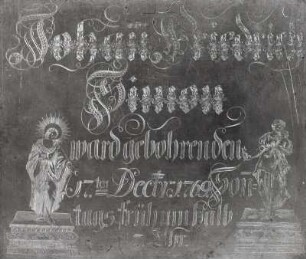 Johann Fridrich
Simon
ward gebohren den
17ten Decbr: 1769 Son⸗
tags früh um halb
Uhr.